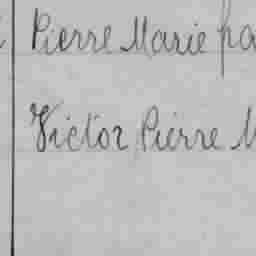 Pierre Marie pa
Victor Pierre M